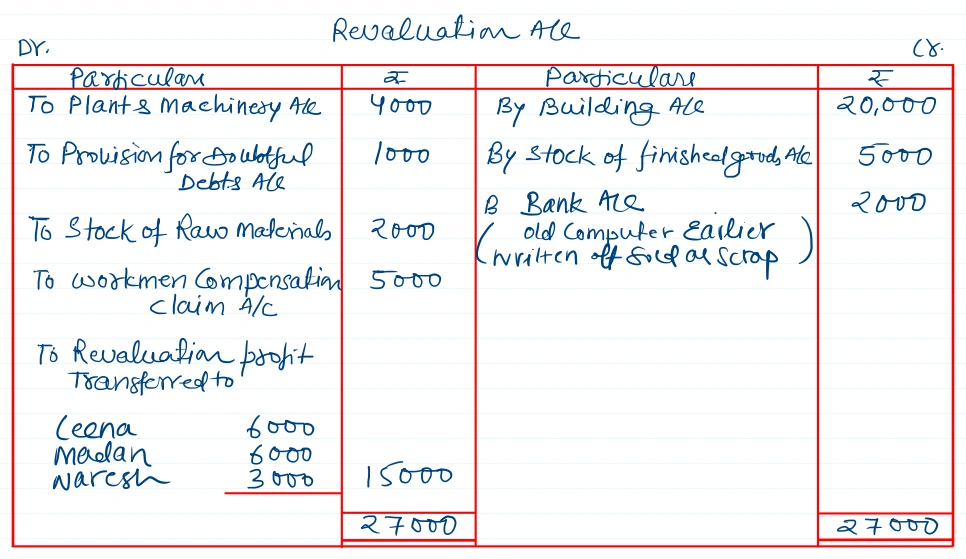 Revaluation A/c
Dr.
Cr.
Particulars ₹ Particulars ₹
To Plant & Machinery A/c 4000 By Building A/c 20,000
To Provision for Doubtful 1000 By Stock of finished goods A/c 5000
Debts A/c
B Bank A/c 2000
To Stock of Raw Materials 2000 ( old Computer Earlier )
written off Sold as Scrap
To workmen Compensation 5000
Claim A/C
To Revaluation profit
Transferred to
Leena 6000
Madan 6000
Naresh 3000 15000
27000 27000